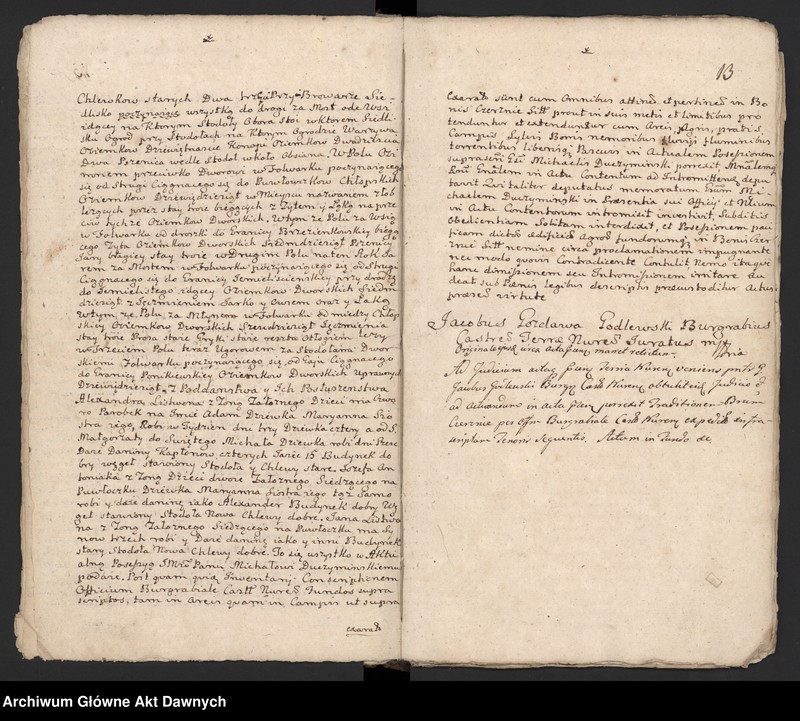 Chlewkow starych Dwa trzeci Przy Browarze Sie-
dlisko poczynaiąc wszystką do drogi za Most ode Wsi
idącey na Ktorym Stodoły Obora Stoi w Ktorem Siedli-
sku Ogrod przy Stodołach na Ktorym Ogrodzie Warzywa
Oziemkow Dziewiętnascie Konopi Oziemkow Dwadziescia
Dwa Pszenica wedle Stodoł wkoło Obsiana, W Polu Ozi-
moriem przeciwko Dworowi w Folwarku poczynaiącego
się od Strugi Ciągnącego się do Puwłoczkow Chłopskich
Oziemkow Dziewiędziesiąt w Mieyscu nazwanem
lezących przez stay troie biegących z Zytem y Łąką na prze-
ciw tychze Oziemkow Dworskich, W tym ze Polu za Wsią
w Folwarku od drozki do Granicy Brzezienkowskiey biegą
cego Zyta Oziemkow Dworskich Siedmdziesiąt Pszenicy
Jary biegący stay troie w Drugim Polu na ten Rok Ja-
rem za Mostem w Folwarku poczynaiącego się od Strugi
Ciągnącego się do Granicy przy drodze
do idącey Oziemkow Dworskich Siedm
dziesiąt z Jęczmieniem Jarko y Owsem oraz y Łąką
W tym ze Polu za Młynem w Folwarku od miedzy Chłop
skiey Oziemkow Dworskich Szescdziesiąt Jęczmienia
stay troie Proza staie Gryki staie reszta Otłogiem lezy
w Trzeciem Polu teraz Ugorowem za Stodołami Dwor-
skiemi Folwarku poczynaiącego się od Gaju Ciągnącego
do Granicy Ponikiewskiey Oziemkow Dworskich Uprawnych
Dziewiędziesiąt z Poddanstwa y Ich Posłuszenstwa
Alexandra Listwona z Zoną Załoznego Dzieci ma Czwo
ro Parobek na Imie Adam Dziewka Maryanna Sio
stra iego, Robi w Tydzien dni trzy Dziewka cztery a od S.
Małgorzaty do Swiętego Michała Dziewka robi dni Szesc
Daie Daniny Kapłonow czterych Jaiec 15 Budynek do
bry węgeł stawiony Stodoła y Chlewy stare. Jozefa An
toniaka z Zoną Dzieci dwoie Załoznego Siedzącego na
Puwłoczku Dziewka Maryanna Siostra iego tąz Samo
robi y daie daninę iako Alexander Budynek dobry Wę
geł stawiony Stodoła Nowa Chlewy dobre. Jana Listwo
na z Zoną Załoznego Siedzącego na Puwłoczku ma Sy
now trzech robi y Daie daninę iako y inni Budynek
stary Stodoła Nowa Chlewy dobre. To się wszystko w Aktu
alną Possesyą JMci Panu Michałowi Duczyminskiemu
podaie. Post quam quia Inwentarij Conscriptionem
Officium Burgrabiale Castr Nuren Fundos supra
scriptos, tam in Areis quam in Campis ut supra
exarat
13
Exarat sunt cum Omnibus attinen et pertinen in Bo
nis Czernie Sitt prout in suis metis et limitibus pro
tenduntur et extenduntur cum Areis, Agris, pratis
Campis Sylvis Boris nemoribus fluvijs fluminibus
torrentibus liberisq Pascuis in Actualem Possessionem
suprascri Gsi Michaelis Duczyminski porrexit,
Gnalem in Actu Contentum ad Intromitten depu
tavit qualiter deputatus memoratum Gsum Mi-
chaelem Duczyminski in Praesentia sui Officij et
in Actu Contentorum intromisit investivit, Subditis
Obedientiam Solitam interdixit, et Possessionem paci
ficam dictor Aedificior Agror fundorumq in Bonis Czer
nie Sitt nemine circa proclamationem impugnante
nec modo quovis Contradicente Contulit. Nemo itaque
hanc dimissionem seu Intromissionem irritare au
deat sub Paenis legibus descriptis praecustoditur Actus
praesen virtute
Jacobus Pozdarwa Godlewski Burgrabius
Castren Terrae Nuren Juratus mpria
Originale ipsum circa Acta praesen manet relictum.
Ad Judicium actaq praesen Terria Nuren veniens
Jacobus Godlewski Burgr Cast Nuren obtulit eid Judicio et
ad acticandum in acta praesen porrexit Traditionem Bonor
Czernie per Offm Burgrabiale Cast Nuren expedit infra-
scriptam Tenoris Sequentis. Actum in Fundo de
Archiwum Główne Akt Dawnych